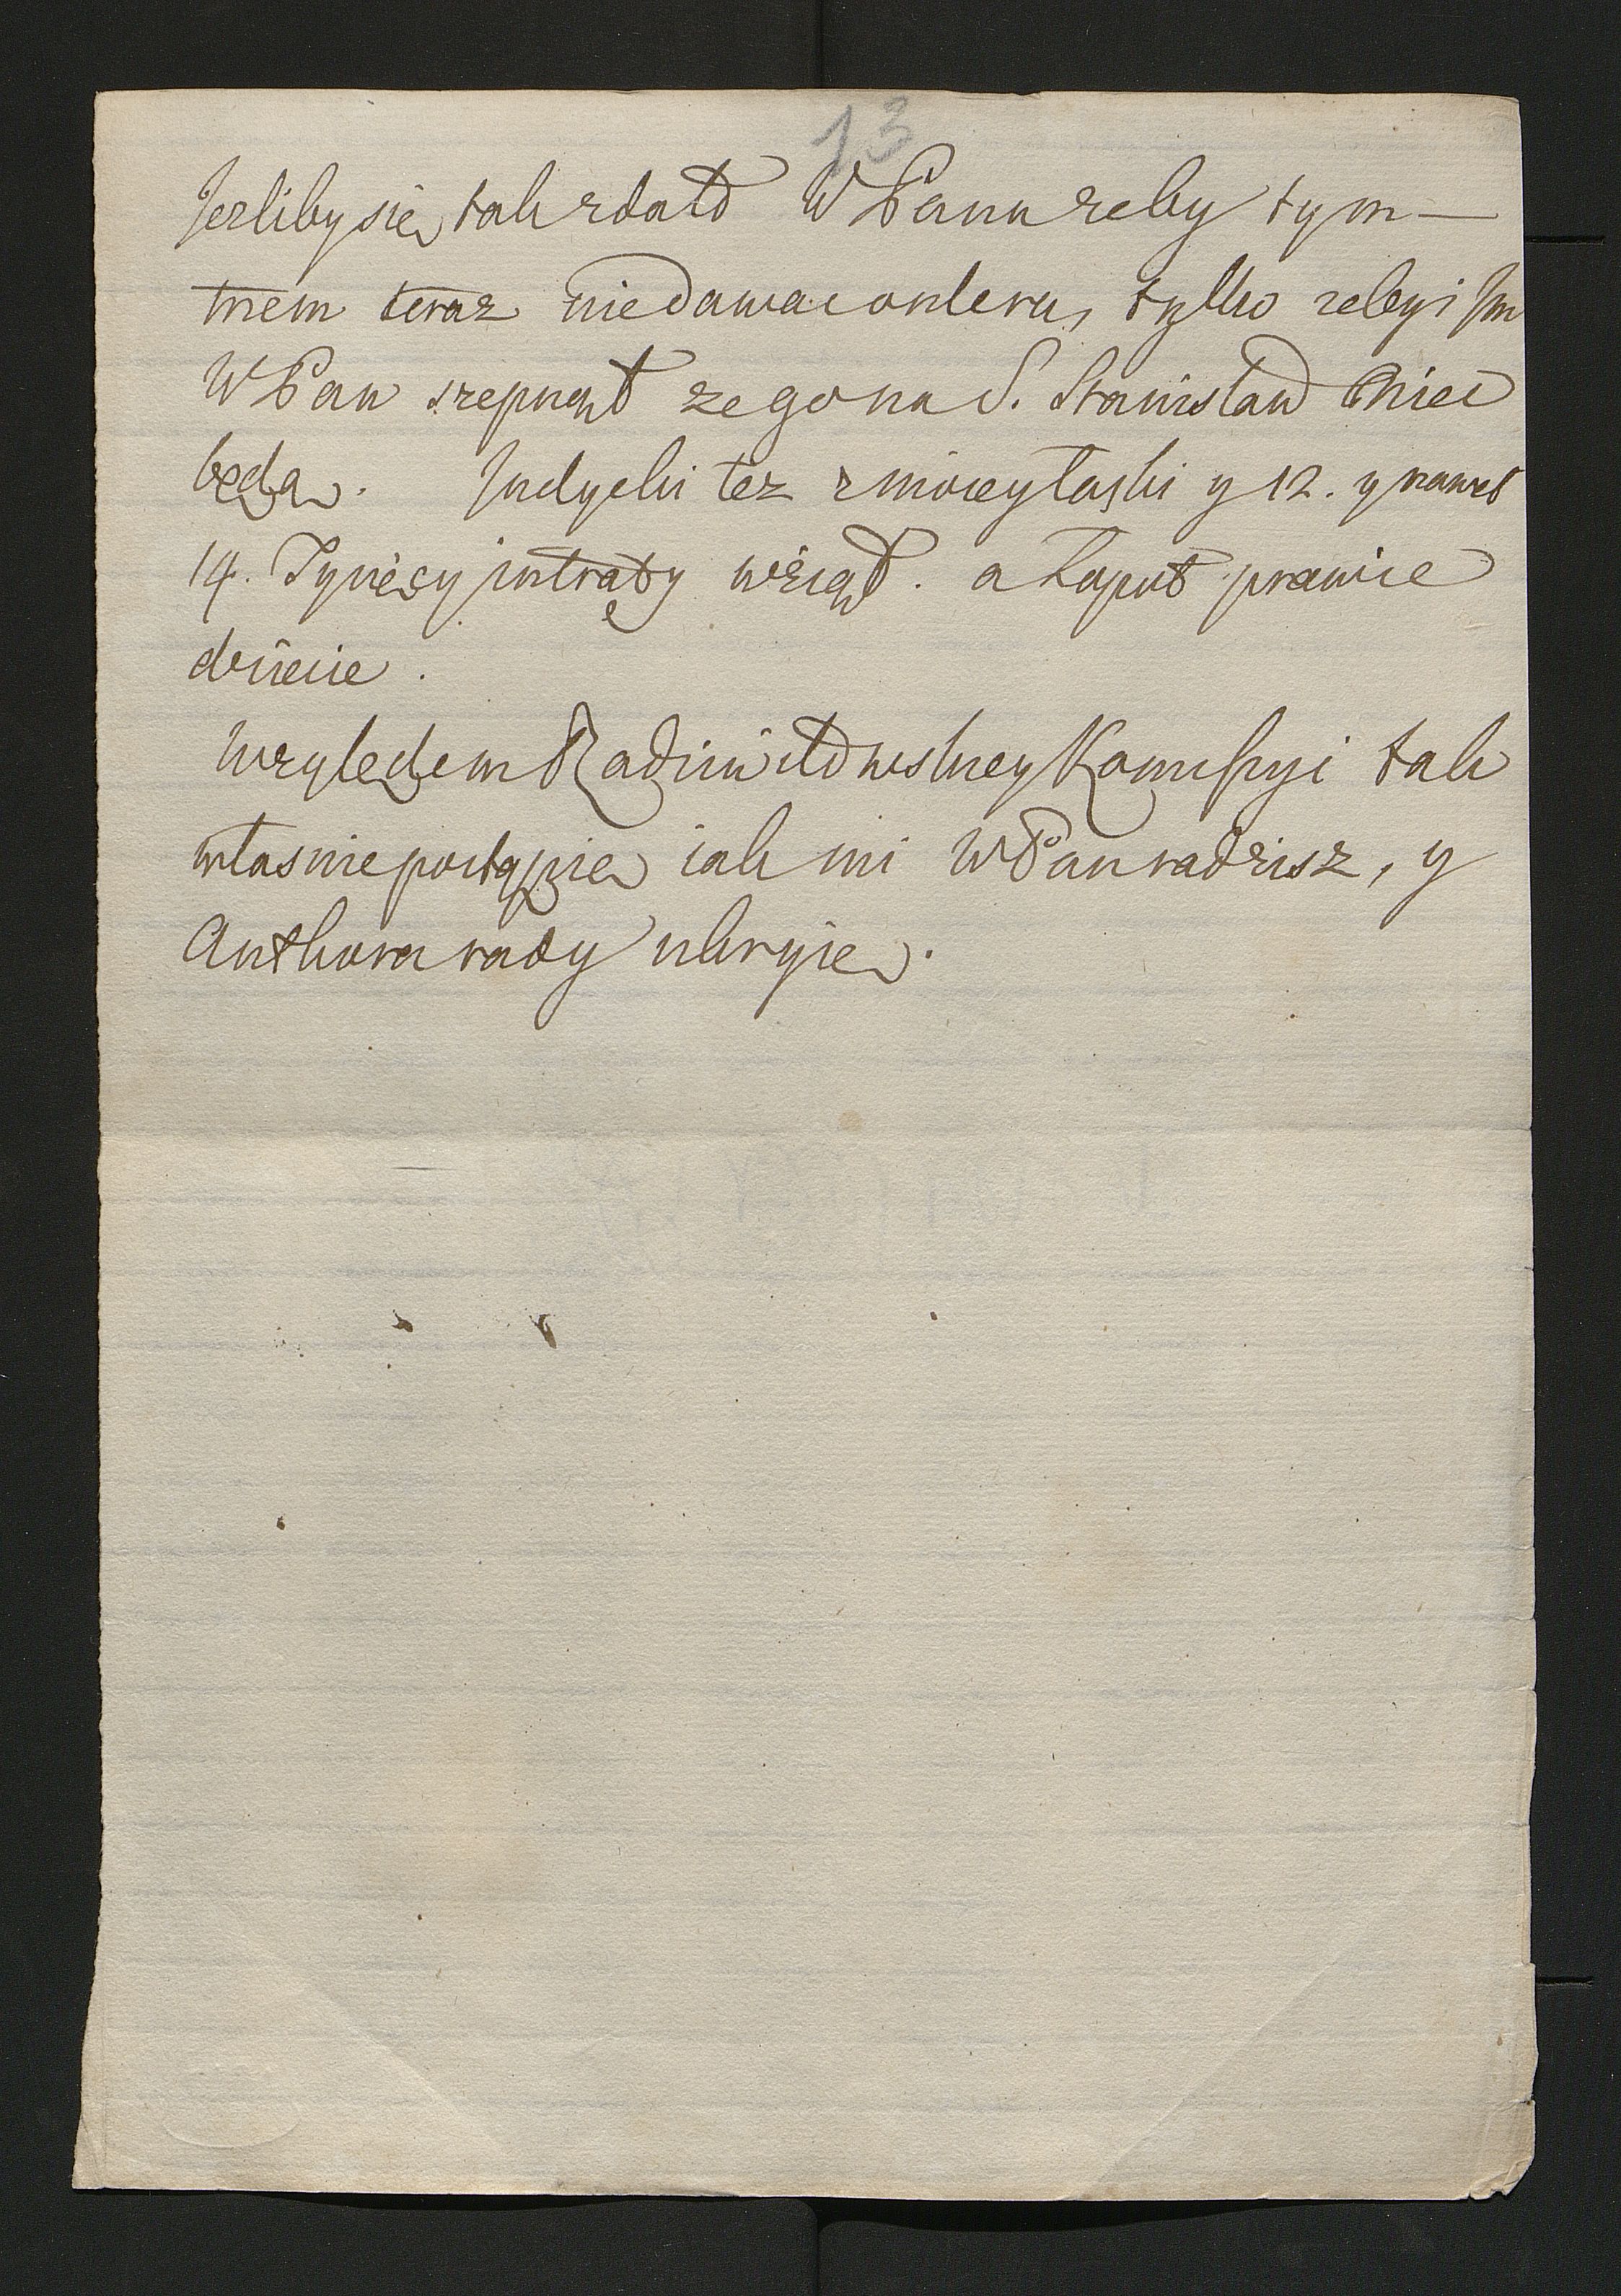 13
Jezliby się tak zdało WPanu zeby tym—
trzem teraz niedawać orderu, tylko zeby i Jm
WPan szepnął ze go na S. Stanisław mieć
będą. Indycki tez z moiey łaski y 12. y nawet
14. Tysięcy intraty wziął. a Łoput prawie
dwiescie.
Względem Radziwiłłowskiey Kommissyi tak
własnie postąpię iak mi WPan radzisz, y
Authora rady ukryię.